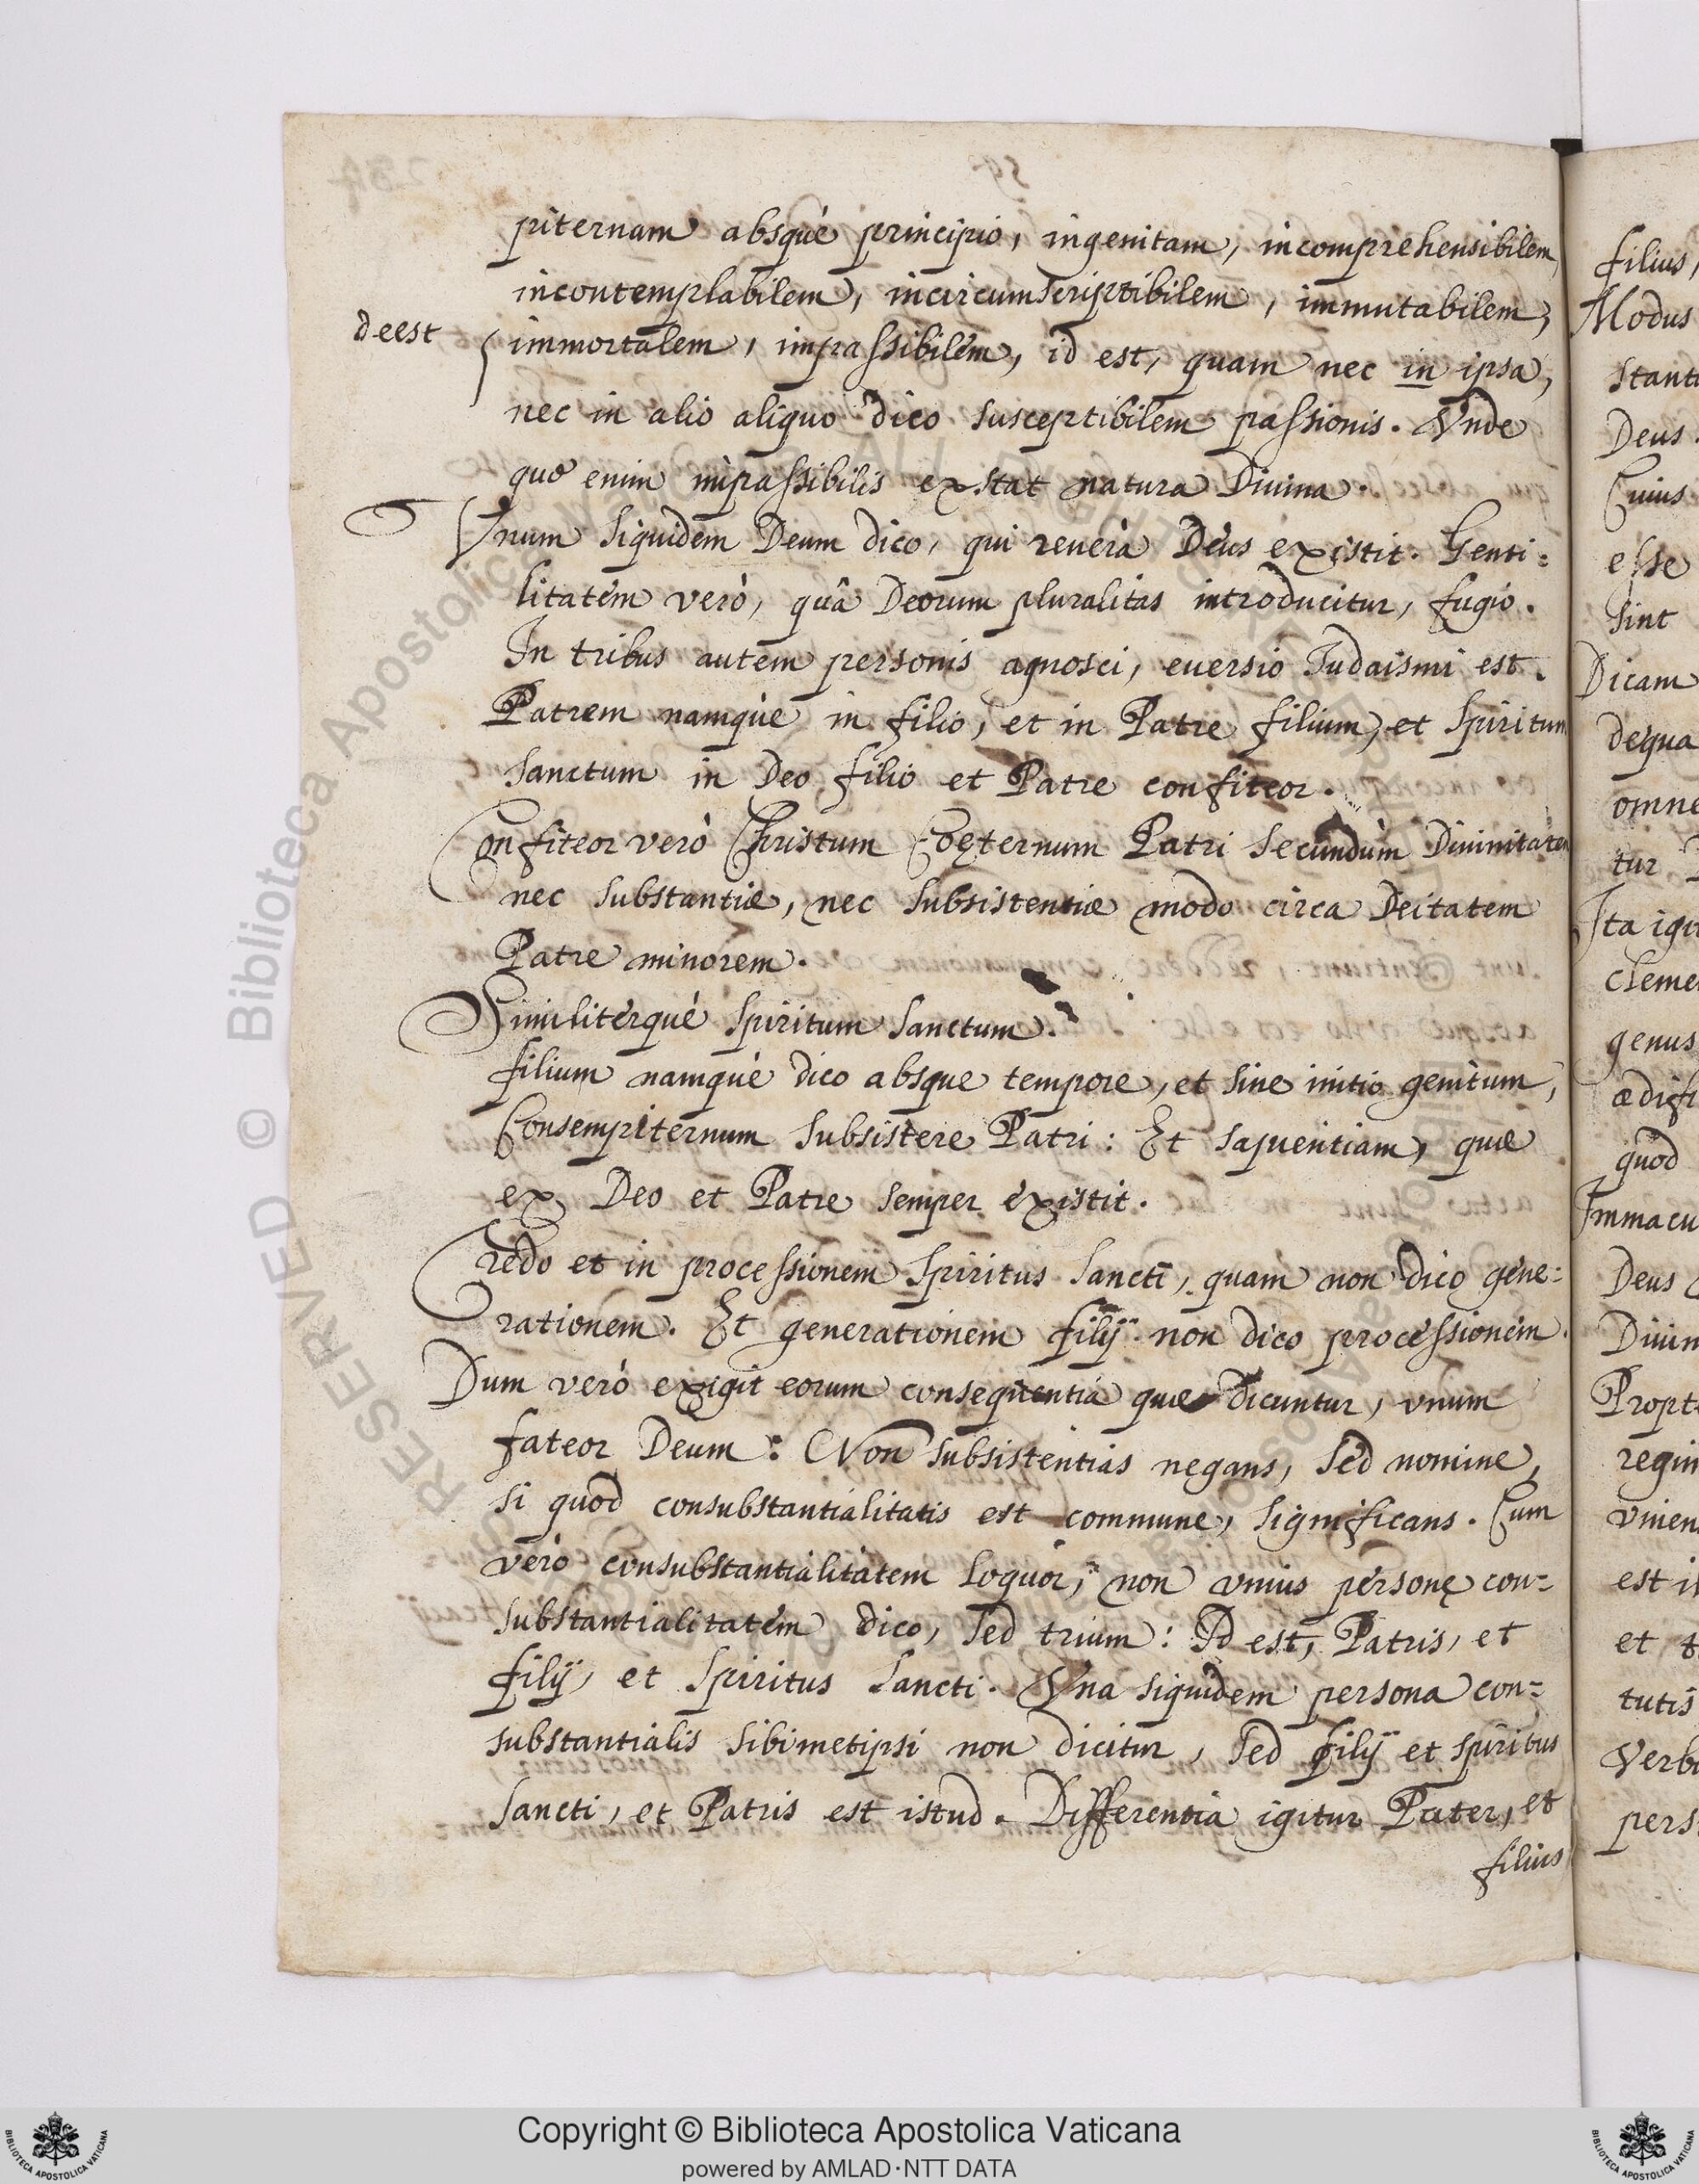 piternam absquè principio, ingenitam, incomprehensibilem,
incontemplabilem, incircumscriptibilem, immutabilem,
deest immortalem, impassibilem, id est, quam nec in ipsa,
nec in alio aliquo dico susceptibilem passionis. Vnde
quo enim impassibilis exstat natura Diuina.
Vnum siquidem Deum dico, qui reuerà Deus existit. Genti=
litatem verò, quâ Deorum pluralitas introducitur, fugio.
In tribus autem personis agnosci, euersio Iudaismi est.
Patrem namquè in filio, et in Patre filium, et Spiritum
Sanctum in Deo filio et Patre confiteor.
Confiteor verò Christum Coęternum Patri secundùm Diuinitatem
nec substantiæ, nec subsistentiæ modo circa Deitatem
Patre minorem.
Similitérquè Spiritum Sanctum.
filium namquè dico absque tempore, et sine initio genitum,
Consempiternum subsistere Patri: Et sapientiam, quæ
ex Deo et Patre semper existit.
Credo et in processionem Spiritus Sancti, quam non dico gene=
rationem. Et generationem filÿ non dico processionem.
Dum verò exigit eorum consequentia quæ dicuntur, vnum
fateor Deum: Non subsistentias negans, sed nomine,
si quod consubstantialitatis est commune, significans. Cum
verò consubstantialitatem loquor, non vnius personę con=
substantialitatem dico, sed trium: Id est, Patris, et
filÿ, et Spiritus Sancti. Vna siquidem persona con=
substantialis sibimetipsi non dicitur, sed filÿ et Spiritus
Sancti, et Patris est istud. Differentia igitur Pater, et
filius
filius,
Modus
stanti
Deus.
Cuius
esse
sint
Dicam
dequa
omne
tur
Ita igit
cleme
genus
ædifi
quod
Immacu
Deus
Diuin
Propt
regin
viuen
est i
et t
tutis
Verb
pers
© Biblioteca Apostolica Vaticana
ALL RIGHTS RESERVED
Copyright © Biblioteca Apostolica Vaticana
powered by AMLAD·NTT DATA
BIBLIOTECA APOSTOLICA VATICANA
BIBLIOTECA APOSTOLICA VATICANA